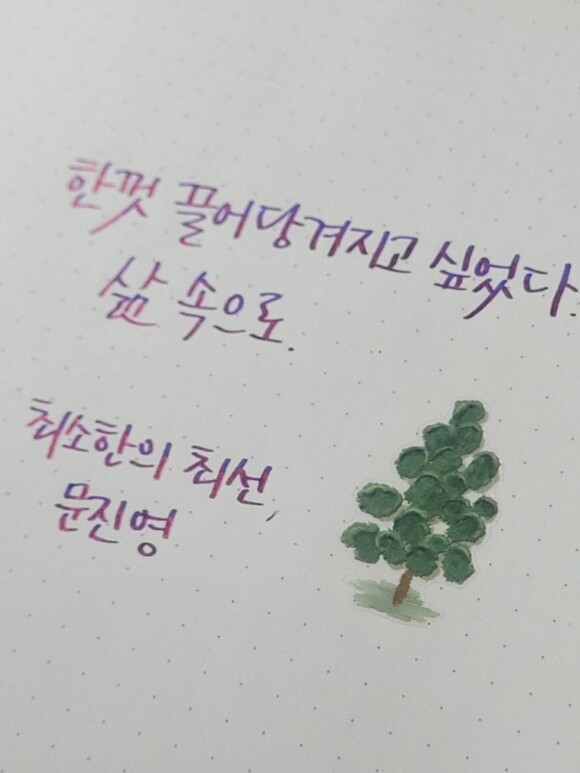 한껏 끌어당겨지고 싶었다.
삶 속으로.
최소한의 최선,
문진영